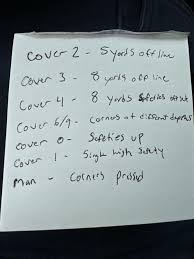 Cover 2 - 5 yards off line
Cover 3 - 8 yards off line
Cover 4 - 8 yards Safeties
Cover 6/9 - Corners at different depths
Cover 0 - Safeties up
Cover 1 - Single high safety
Man - Corners pressed